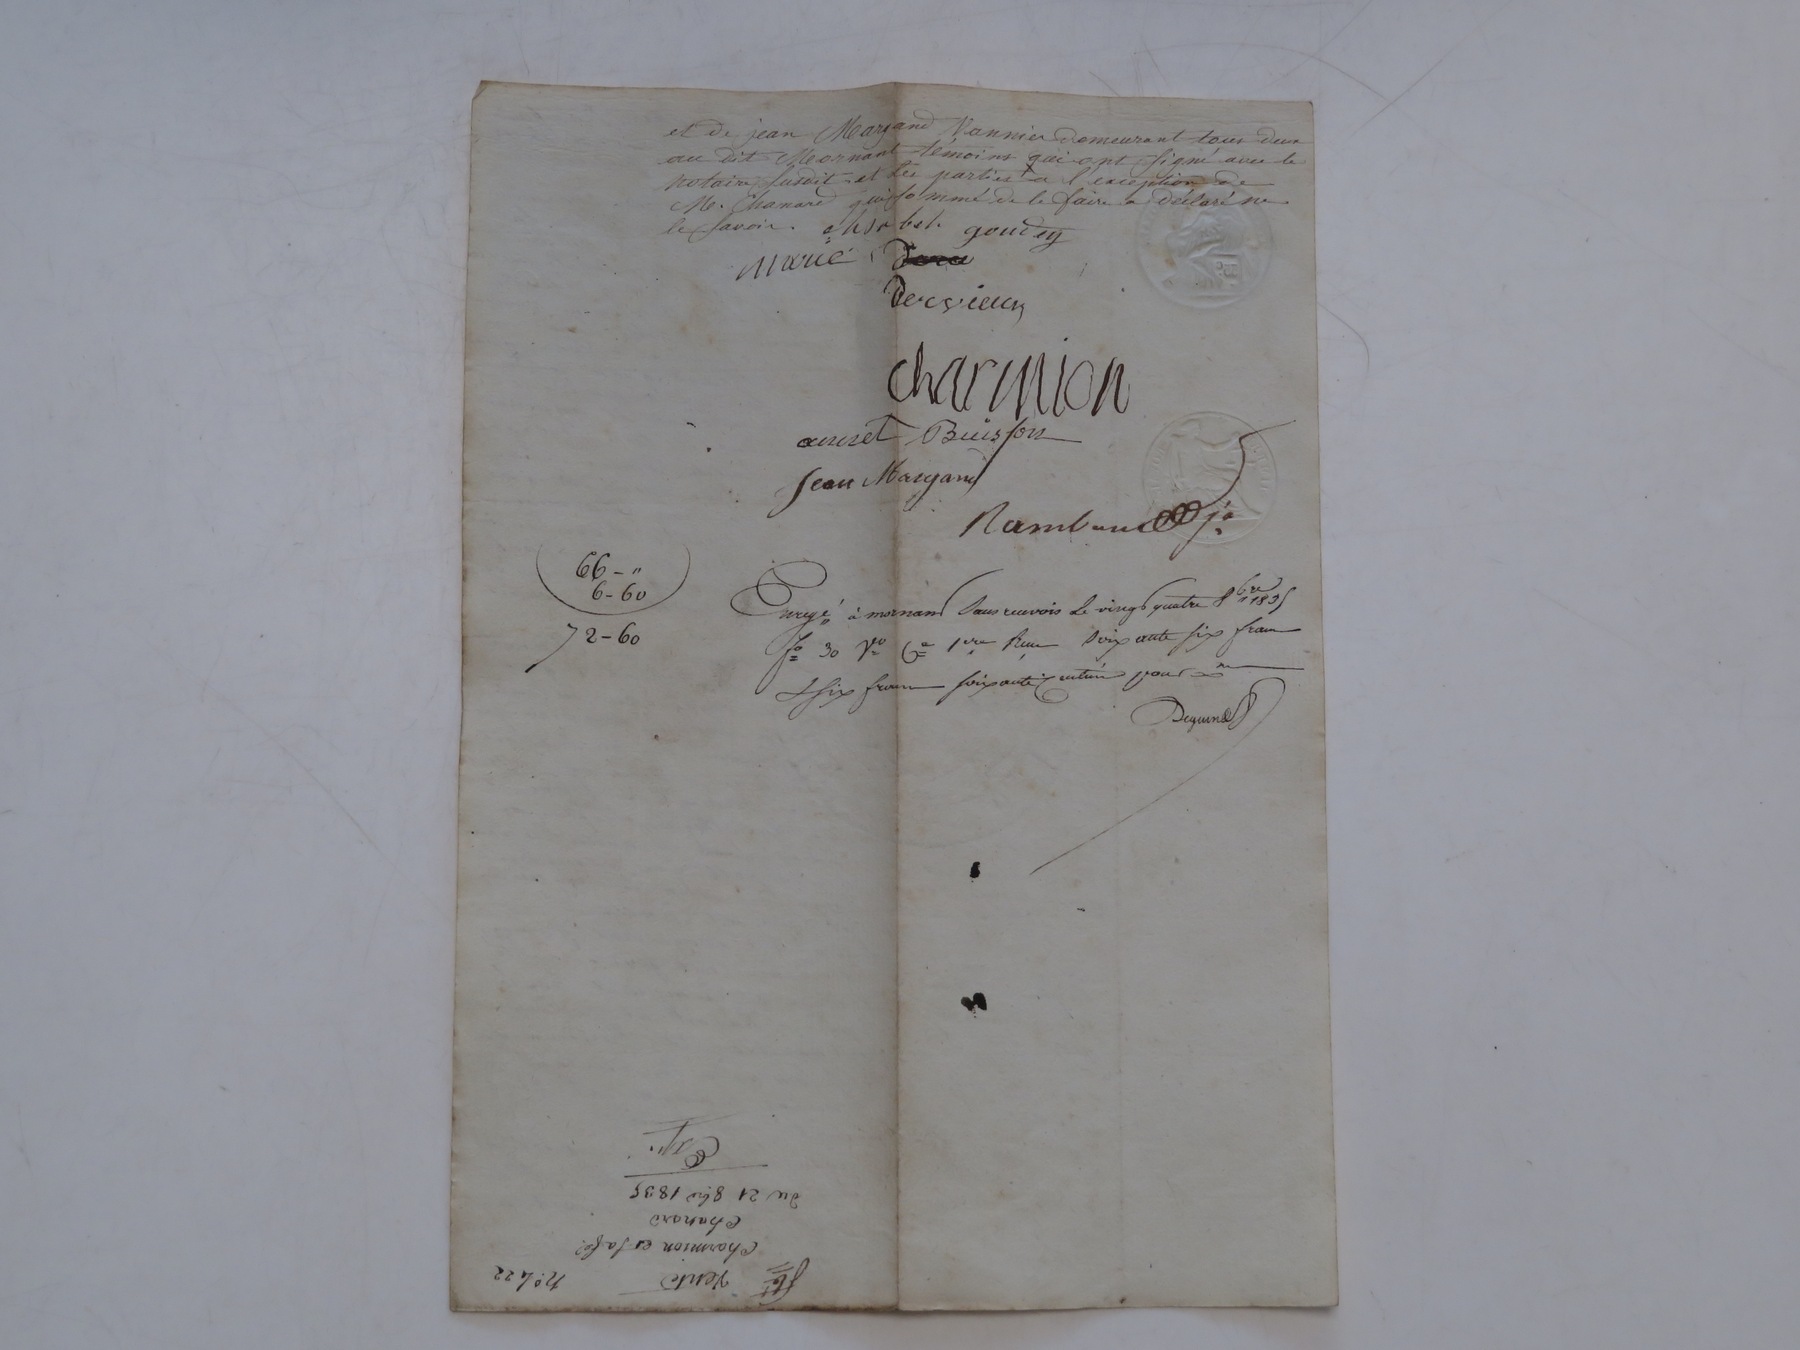 et de jean Margand Vannier demeurant tous deux
au dit Mornant témoins qui ont signé avec le
notaire susdit et les parties a l'exception de
M. Chanard qui sommé de le faire a déclaré ne
le savoir.
goudey
marie
Dervieux
charmion
Buisson
Jean Margand
66-"
6-60
72-60
à mornant sans renvois le vingt quatre 8bre 1835
fo 30 Vo Ce 1re Reçu soixante six francs
& six francs soixante centimes pour
No 422
vente
Charmion et sa fe
Chanard
du 21 8bre 1835